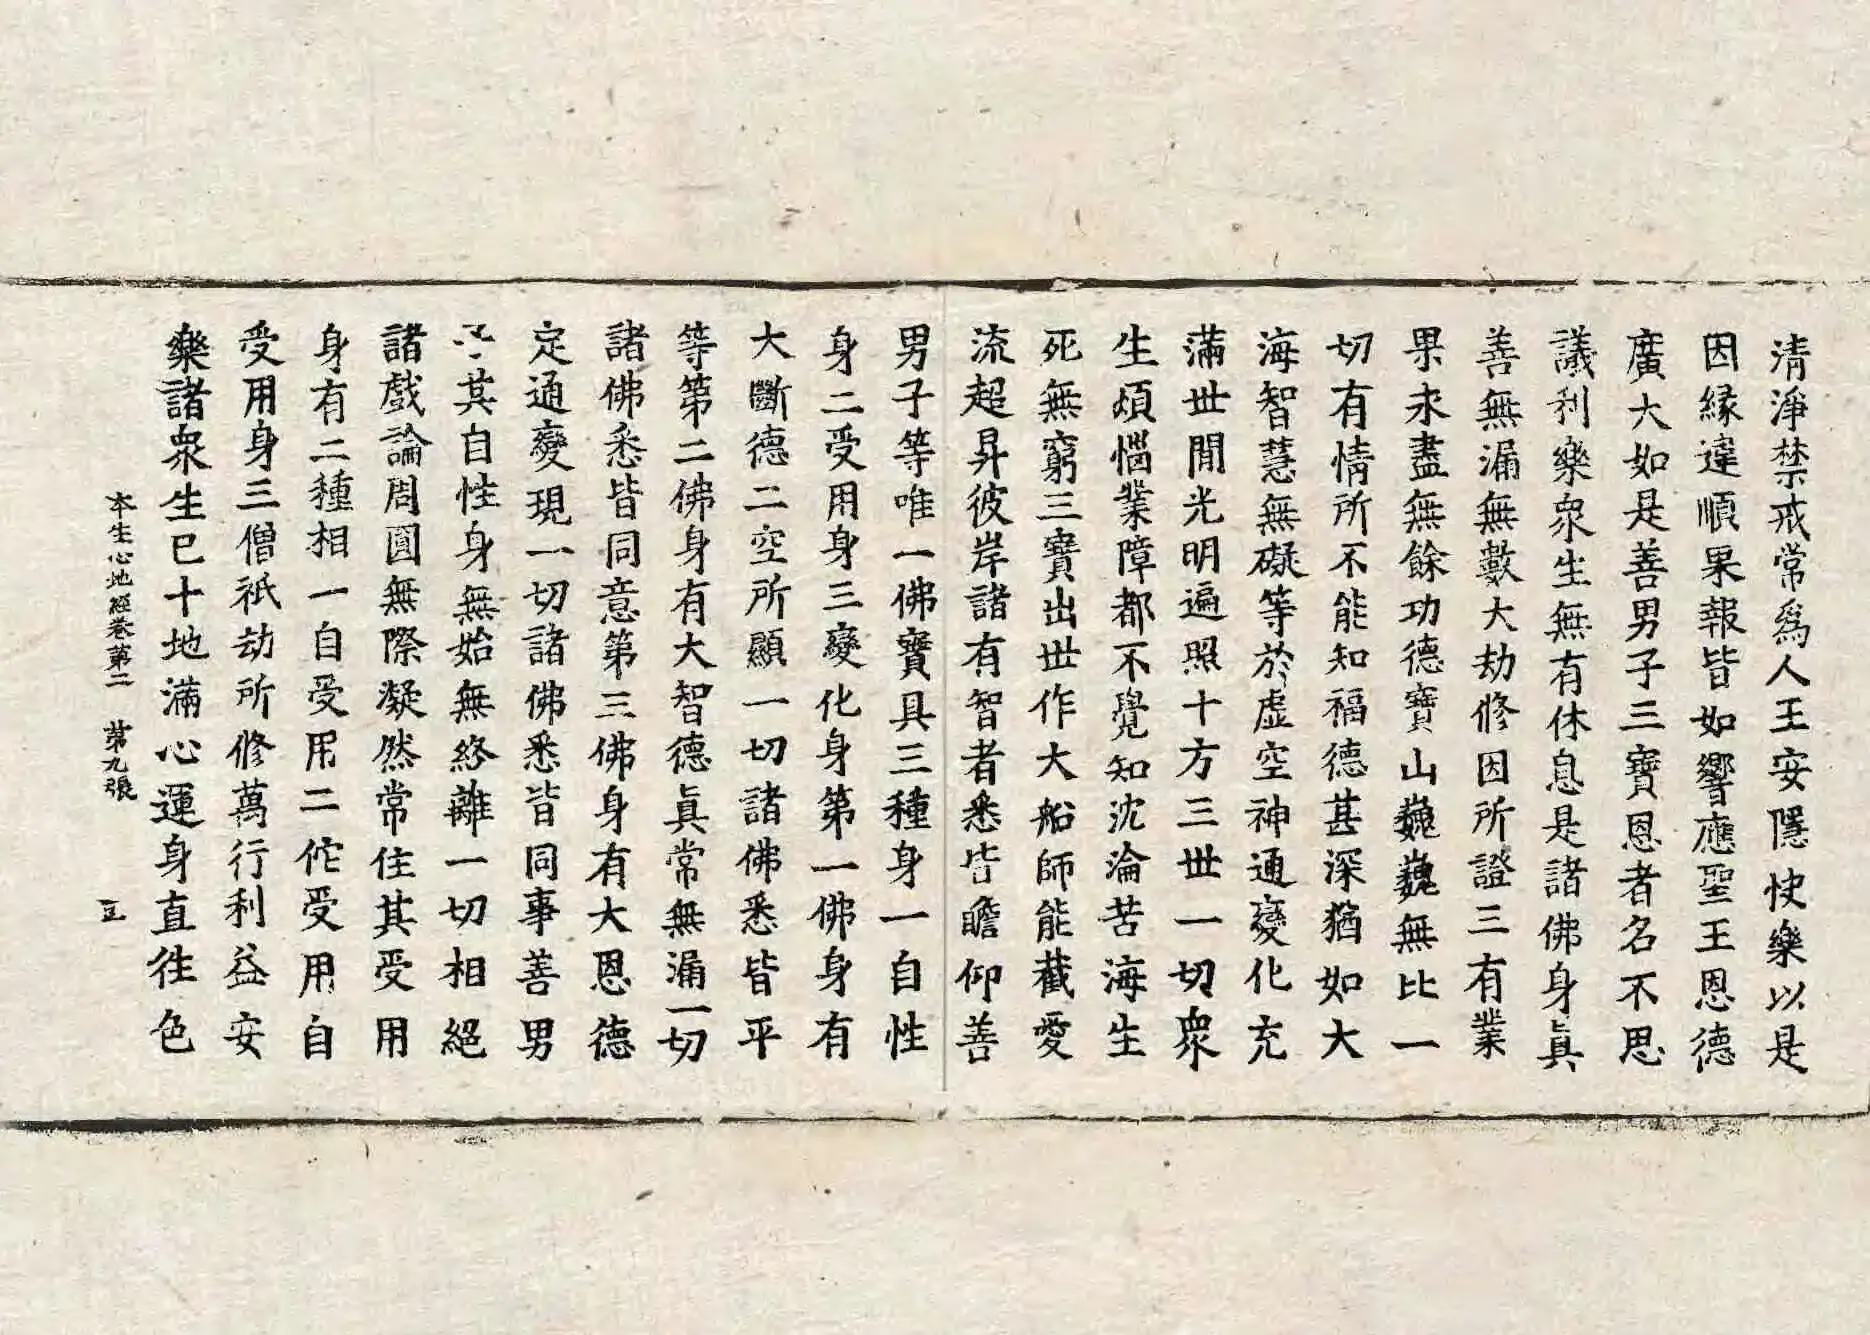 清淨禁戒常爲人王安隱快樂以是
因縁違順果報皆如響應聖王恩德
廣大如是善男子三寶恩者名不思
議利樂衆生無有休息是諸佛身眞
善無漏無數大劫修因所證三有業
果永盡無餘功德寶山巍巍無比一
切有情所不能知福德甚深猶如大
海智慧無礙等於虛空神通變化充
滿世間光明遍照十方三世一切衆
生煩惱業障都不覺知沈淪苦海生
死無窮三寶出世作大船師能截愛
流超昇彼岸諸有智者悉皆瞻仰善
男子等唯一佛寶具三種身一自性
身二受用身三變化身第一佛身有
大斷德二空所顯一切諸佛悉皆平
等第二佛身有大智德眞常無漏一切
諸佛悉皆同意第三佛身有大恩德
定通變現一切諸佛悉皆同事善男
子其自性身無始無終離一切相絕
諸戲論周圓無際凝然常住其受用
身有二種相一自受用二佗受用自
受用身三僧祇劫所修萬行利益安
樂諸衆生已十地滿心運身直往色
本生心地經卷第二 第九張